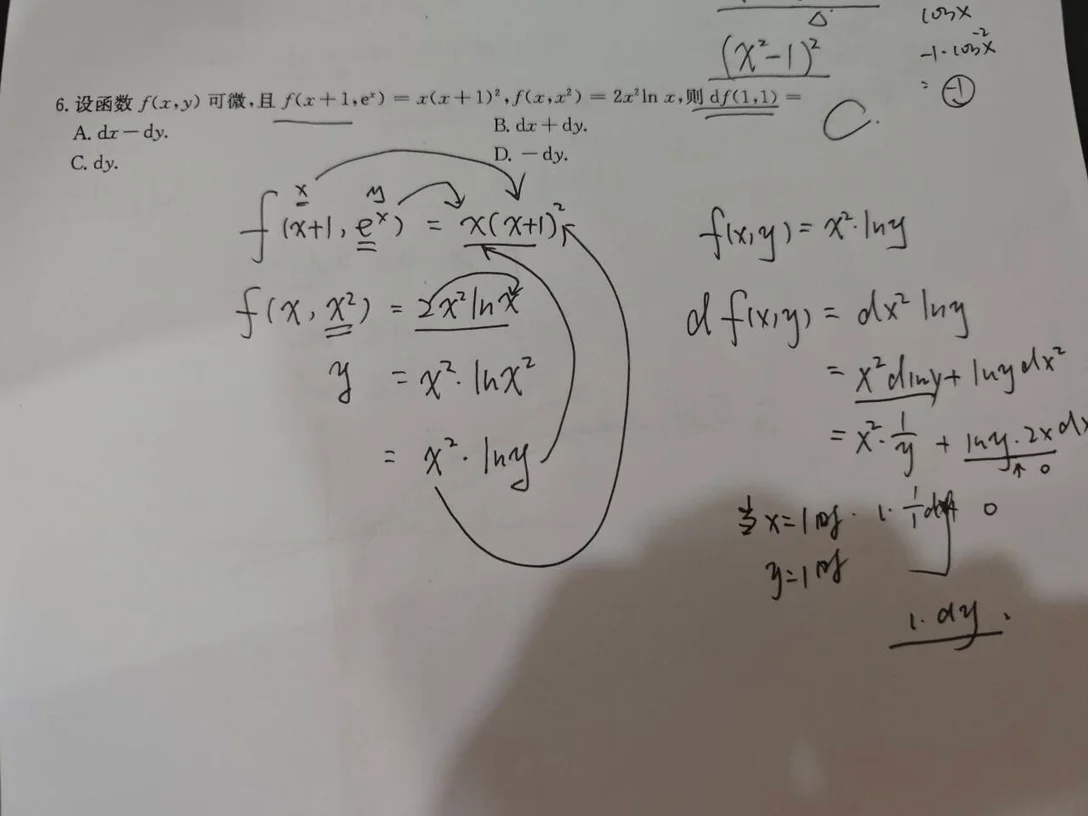 Δ
cosx
(x²-1)²
-1·cos⁻²x
= -1
6. 设函数 f(x,y) 可微,且 f(x+1,eˣ) = x(x+1)², f(x,x²) = 2x²ln x,则 df(1,1) =
C.
A. dx-dy.
B. dx+dy.
C. dy.
D. -dy.
x y
f(x+1, eˣ) = x(x+1)²
f(x, x²) = 2x²lnx
y = x²·lnx²
= x²·lny
f(x,y) = x²·lny
d f(x,y) = dx² lny
= x²dlny + lny dx²
= x²·1/y + lny·2x dx
↑ 0
当 x=1时 · 1·1/1 dy 0
y=1时
1·dy.